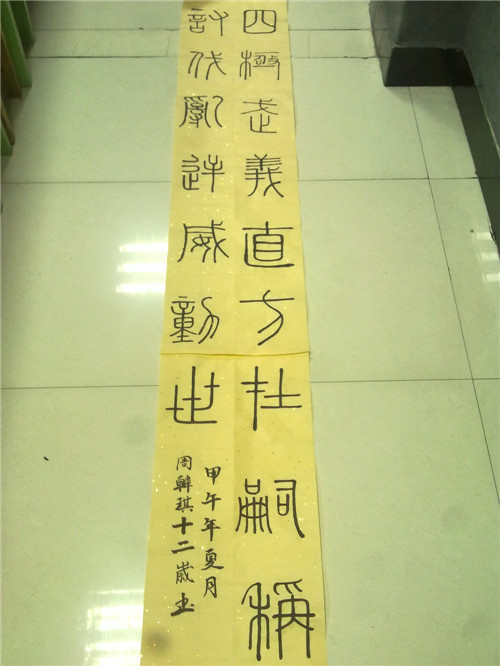 四極武義直方在嗣稱
討伐亂逆威動世
甲午年夏月
周韓琪十二歲书